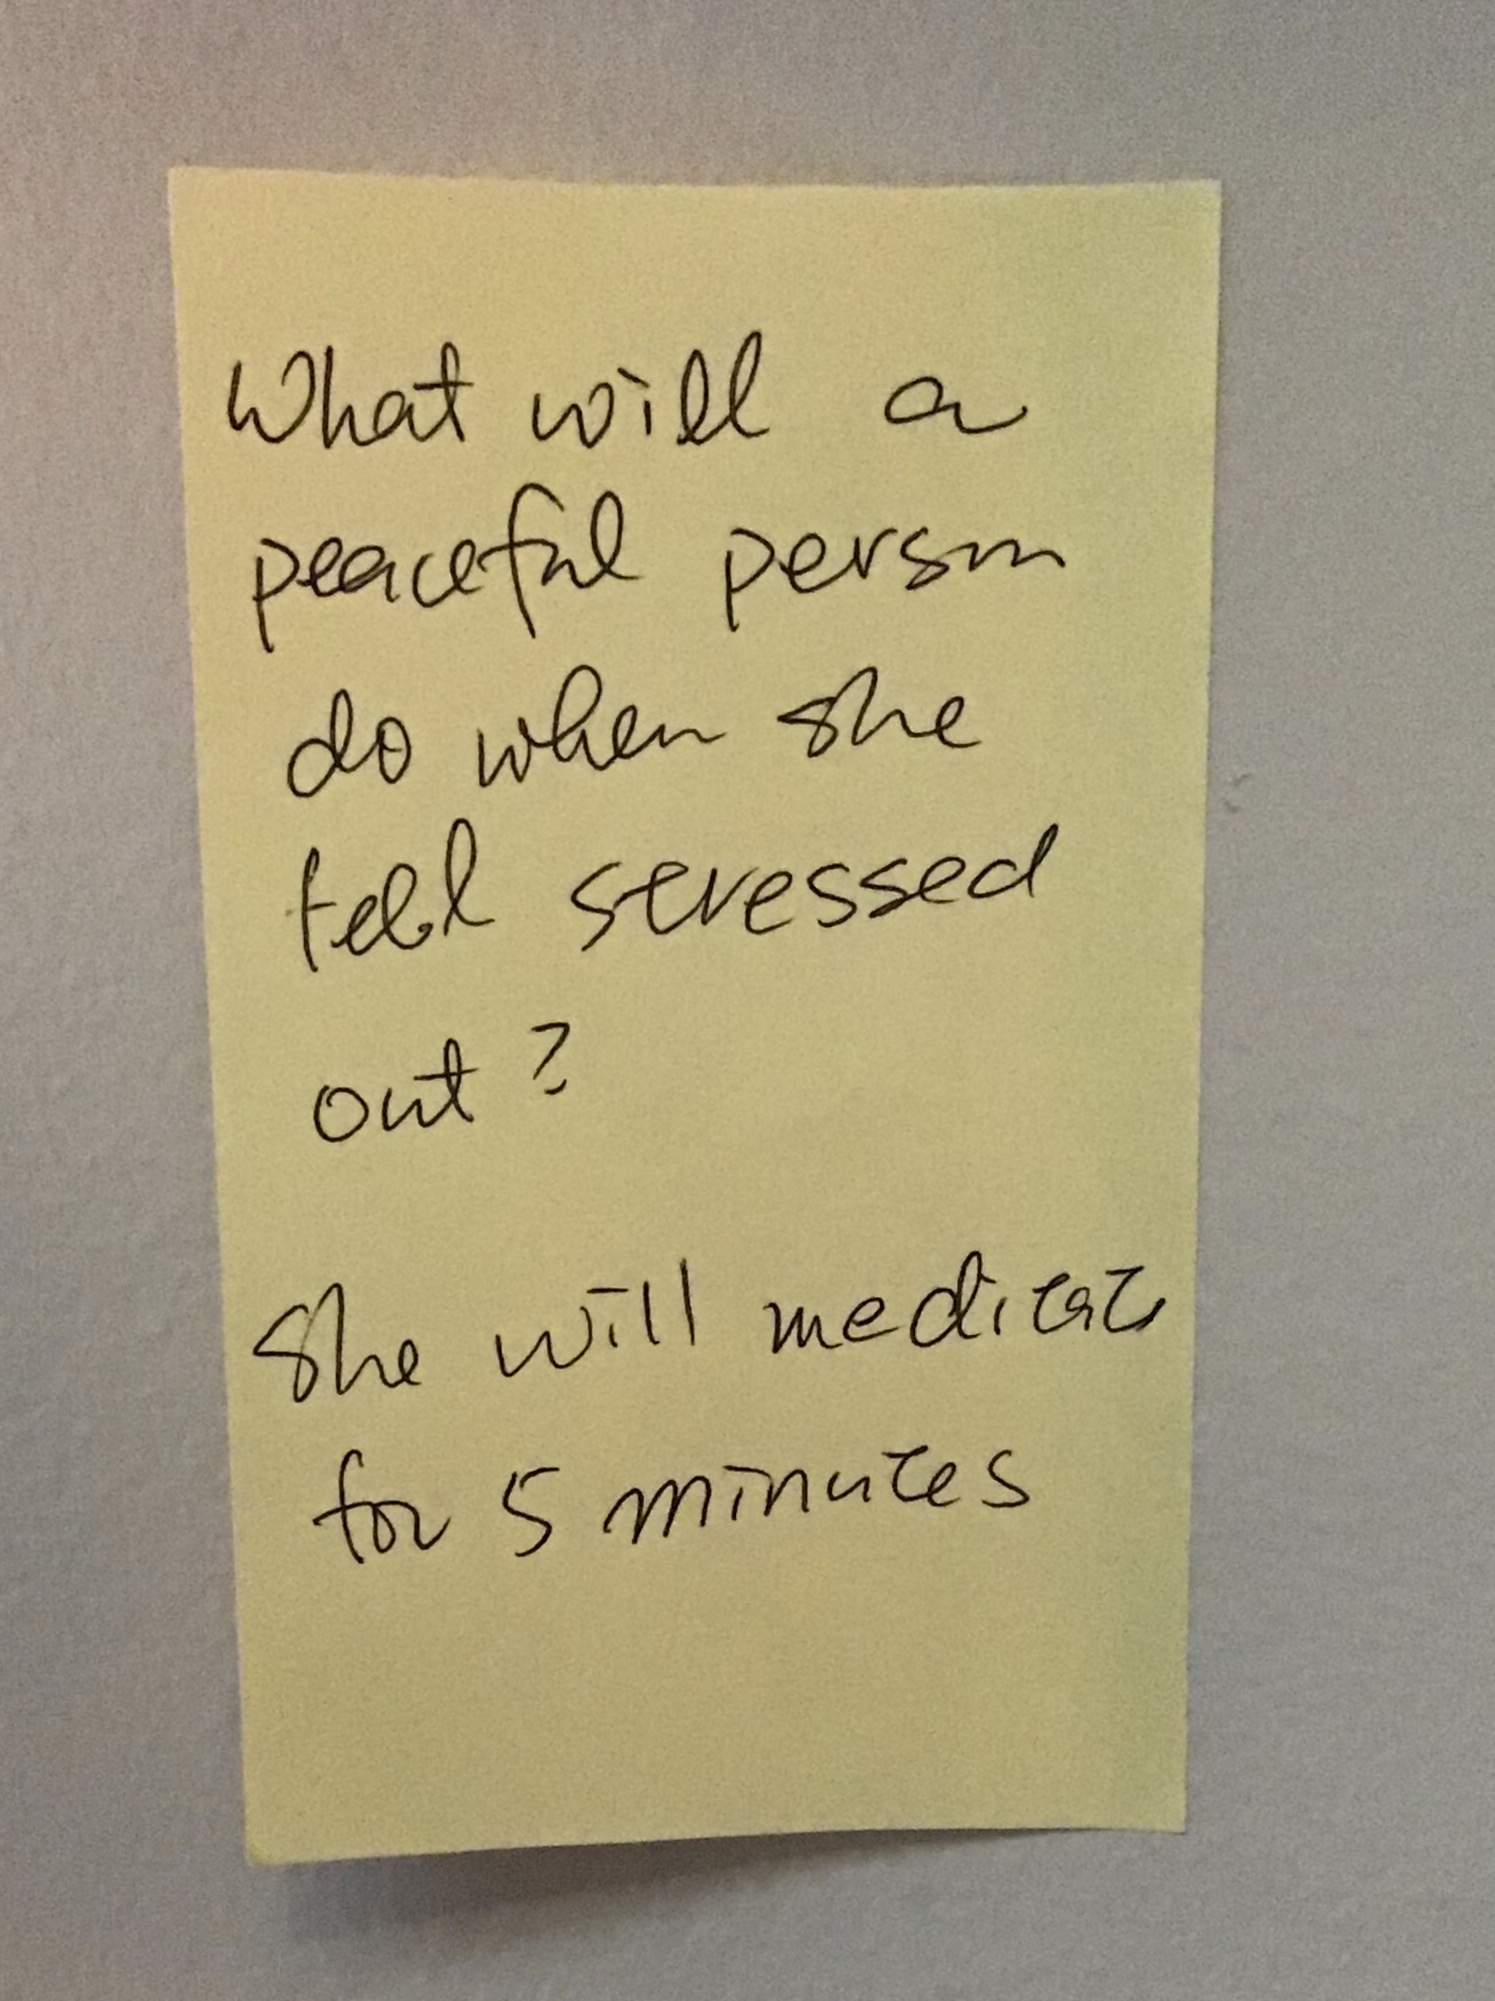 What will a
peaceful person
do when she
feel stressed
out?
She will meditate
for 5 minutes